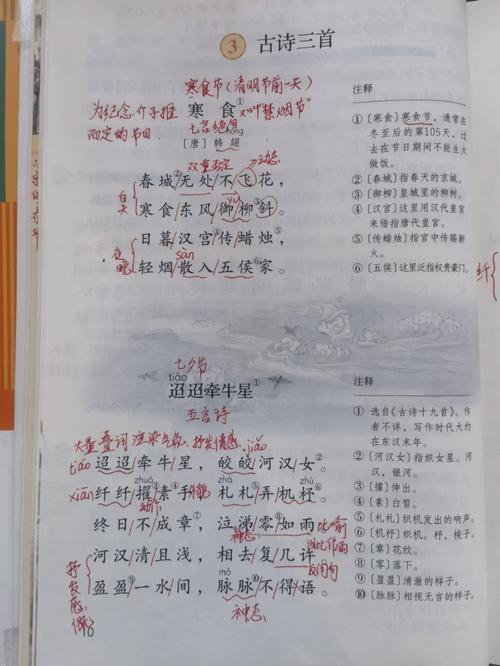 3 古诗三首
寒食节(清明节前一天)
为纪念介子推
而定的节日
寒食①
又叫"禁烟节"
七言绝句
hóng
[唐]韩翃
双重否定
动态
白天
春城②无处不飞花,
yù
寒食东风御柳③斜。
夜晚
日暮汉宫④传蜡烛⑤,
sàn
轻烟散入五侯⑥家。
注释
①〔寒食〕寒食节,通常在
冬至后的第105天,过
去在节日期间不能生火
做饭。
②〔春城〕指春天的京城。
③〔御柳〕皇城里的柳树。
④〔汉宫〕这里用汉代皇宫
来借指唐代皇宫。
⑤〔传蜡烛〕指宫中传赐新
火。
⑥〔五侯〕这里泛指权贵豪门。
七夕节
tiáo
迢迢牵牛星①
五言诗
大量叠词
抒发情感
jiǎo
tiáo
迢迢牵牛星,皎皎河汉女②。
xiān
zhuó
zhá
zhù
纤纤擢③素④手,札札⑤弄机杼⑥。
动作
终日不成章⑦,泣涕零⑧如雨。
比喻
河汉清且浅,相去复几许?
反问句
mò
盈盈⑨一水间,脉脉⑩不得语。
神态
注释
①选自《古诗十九首》。作
者不详,写作时代大约
在东汉末年。
②〔河汉女〕指织女星。河
汉,银河。
③〔擢〕伸出。
④〔素〕白皙。
⑤〔札札〕织机发出的响声。
⑥〔机杼〕织机。杼,梭子。
⑦〔章〕花纹。
⑧〔零〕落下。
⑨〔盈盈〕清澈的样子。
⑩〔脉脉〕相视无言的样子。
10